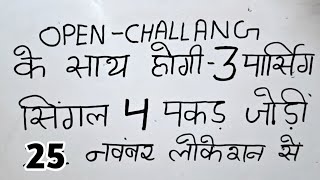 OPEN-CHALLANG
के साथ होगी-3 पार्सिग
सिंगल 4 पकड़ जोड़ीं
25. नवंबर लोकेशन से